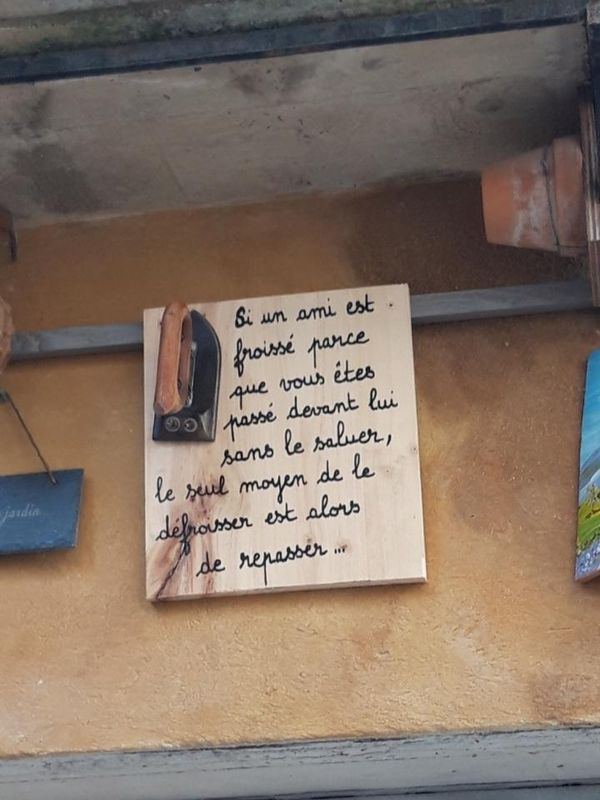 Si un ami est
froissé parce
que vous êtes
passé devant lui
sans le saluer,
le seul moyen de le
défroisser est alors
de repasser...
jardin...